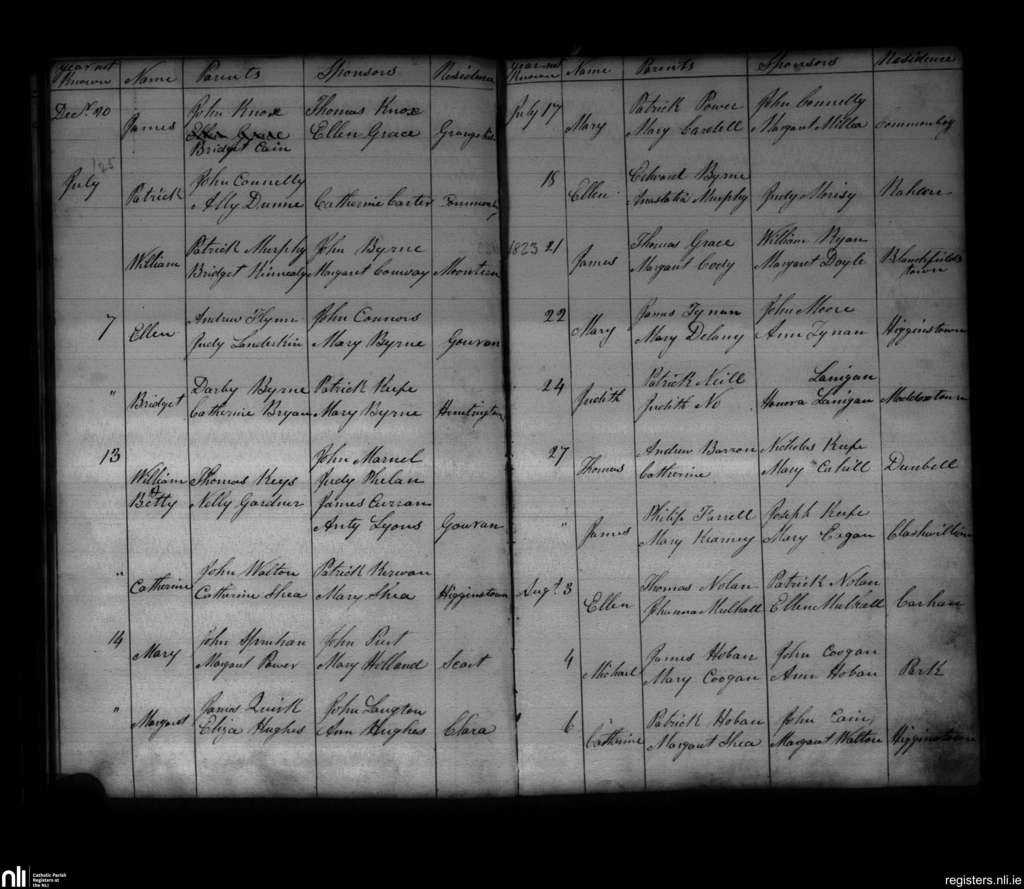 Year not Known Name Parents Sponsors Residence
Decr. 20 James John Knox Thomas Knox
Ellen Grace Ellen Grace
Bridget Cain
'25
July Patrick John Connelly
Ally Dunne Catherine Carter
William Patrick Murphy John Byrne
Bridget Kinnealy Margaret Conway Mounteen
7 Ellen Andrew Flynn John Connors
Judy Landerkin Mary Byrne Gowran
" Bridget Darby Byrne Patrick Keefe
Catherine Bryan Mary Byrne Huntington
13 John Marnel
William Thomas Keys Judy Phelan
& Betty Nelly Gardner James Curran
Anty Lyons Gowran
" Catherine John Walton Patrick Kerwan
Catherine Shea Mary Shea Higginstown
14 Mary John Spruhan John
Margaret Power Mary Holland Scart
" Margaret James Quirk John Langton
Eliza Hughes Ann Hughes Clara
Year not Known Name Parents Sponsors Residence
July 17 Mary Patrick Power John Connelly
Mary Cardell Margaret Millea
18 Ellen Edward Byrne
Anastatia Murphy Judy
1823 21 James Thomas Grace William Ryan
Margaret Cody Margaret Doyle Blanchfields
town
22 Mary James Tynan John Moore
Mary Delany Ann Tynan Higginstown
24 Judith Patrick Neill Lanigan
Judith No Honora Lanigan Maddoxtown
27 Thomas Andrew Barron Nicholas Keefe
Catherine Mary Cahill Dunbell
" James Philip Farrell Joseph Keefe
Mary Kearney Mary Eagan Clashwilliam
Augt. 3 Ellen Thomas Nolan Patrick Nolan
Johanna Mulhall Ellen Mulhall
4 Michael James Hoban John Coogan
Mary Coogan Ann Hoban Park
6 Catherine Patrick Hoban John Cain
Margaret Shea Margaret Walton Higginstown
nli Catholic Parish
Registers at
the NLI
registers.nli.ie